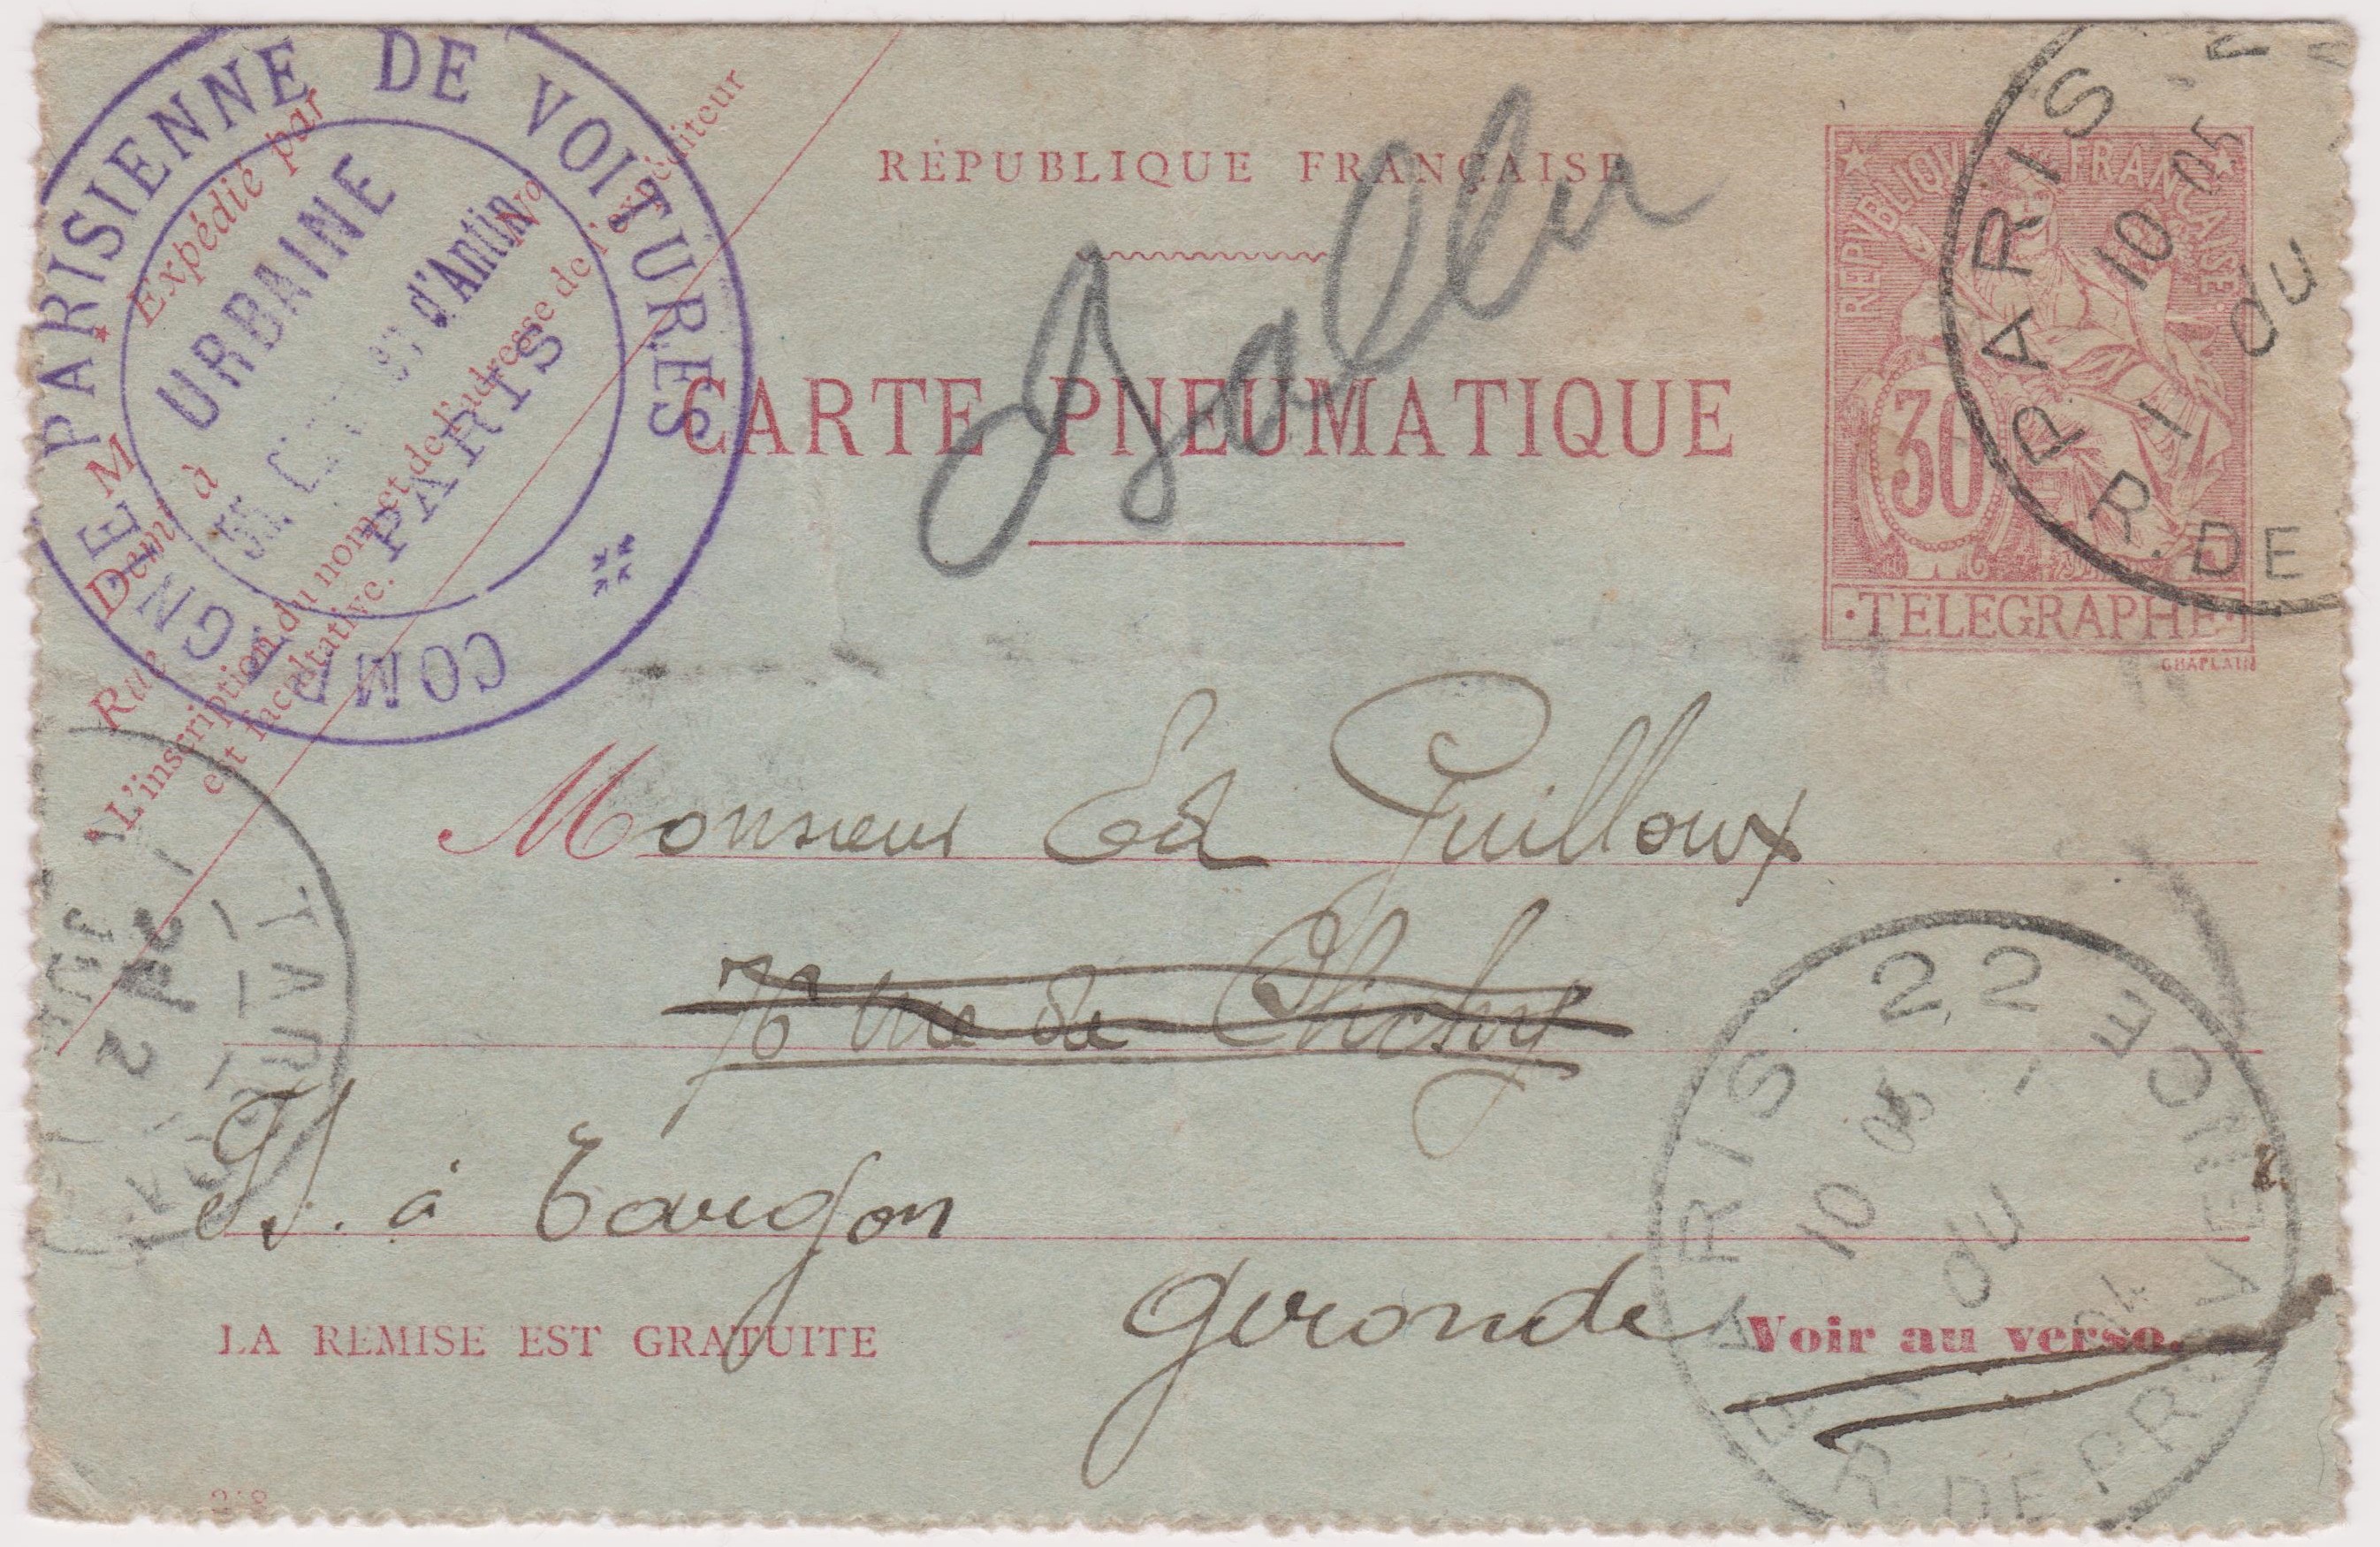 COMPAGNIE PARISIENNE DE VOITURES
URBAINE
d'Antin
PARIS
Expédié par
M
Demt à
Rue
No
L'inscription du nom et de l'adresse de l'expéditeur
est facultative.
RÉPUBLIQUE FRANÇAISE
CARTE PNEUMATIQUE
REPVBLIQVE FRANÇAISE
30
·TELEGRAPHE·
CHAPLAIN
PARIS
10 05
du
1
R. DE
Monsieur Ed Guilloux
rue de Clichy
à Targon
Gironde
LA REMISE EST GRATUITE
Voir au verso.
PARIS 22
10 05
du
04
R. DE PROVENCE